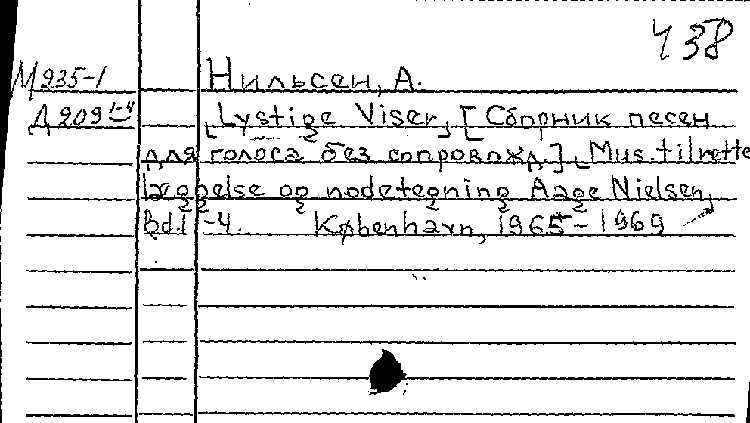 438
М935-1 Нильсен, А.
Д909 1-4 Lystige Viser, [Сборник песен
для голоса без сопровожд.], Mus. tilrette
læggelse og nodetegning Aage Nielsen,
Bd.1-4. København, 1965-1969